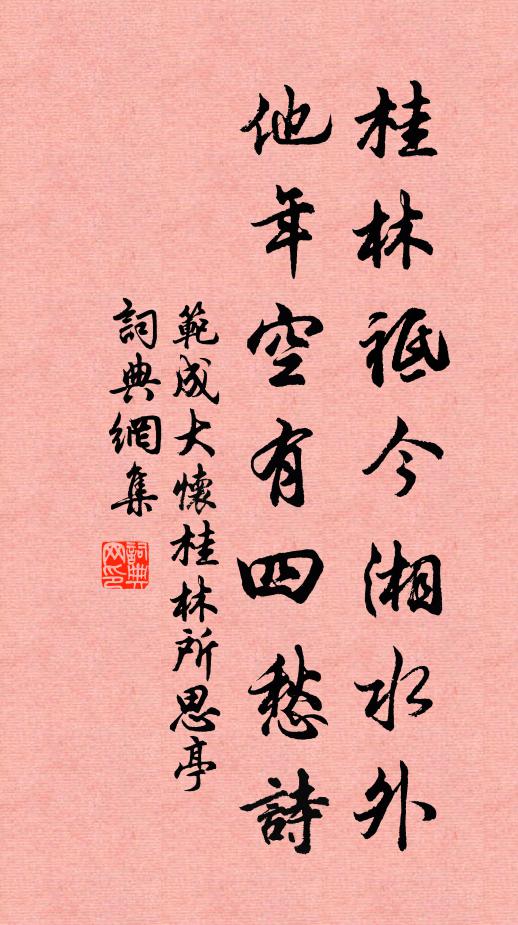 桂林祗今湘水外
他年空有四愁詩
範成大懷桂林所思亭
詞典網集
詞典网印